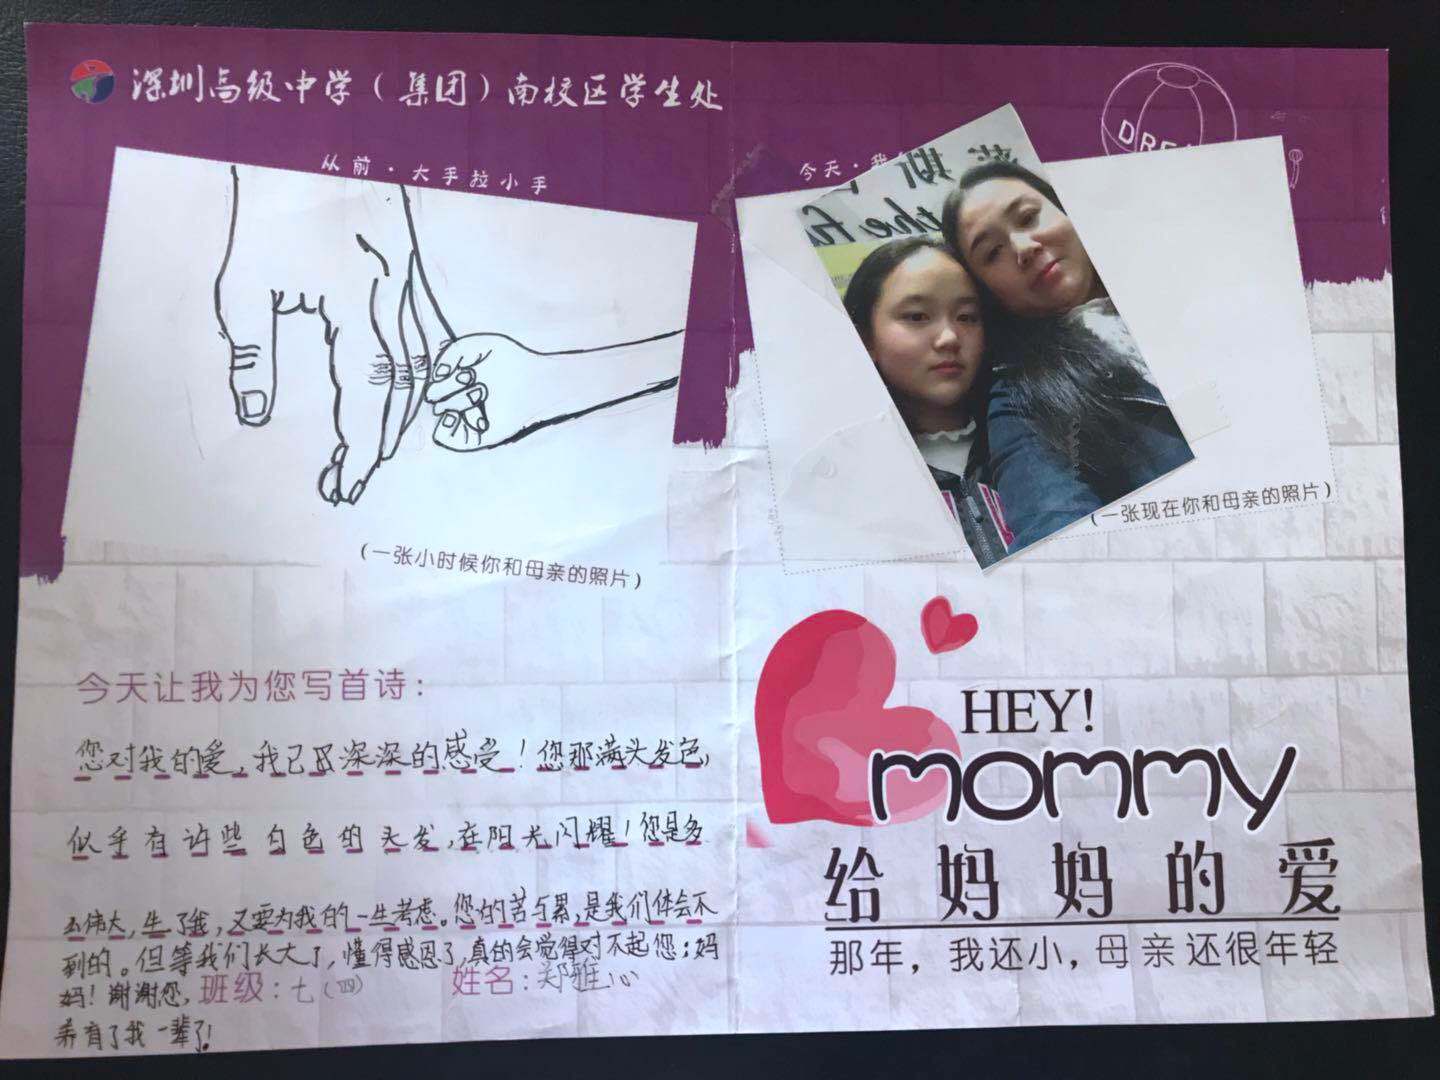 深圳高级中学（集团）南校区学生处
从前·大手拉小手
（一张小时候你和母亲的照片）
今天让我为您写首诗：
您对我的爱，我已深深的感受！您那满头发色，
似乎有许些白色的头发，在阳光闪耀！您是多
么伟大，生了我，又要为我的一生考虑。您的苦与累，是我们体会不
到的。但等我们长大了，懂得感恩了，真的会觉得对不起您：妈
妈！谢谢您，
养育了我一辈了！
班级：七（四）
姓名：郑雅心
今天·我
DRE
the fu
（一张现在你和母亲的照片）
HEY!
mommy
给妈妈的爱
那年，我还小，母亲还很年轻